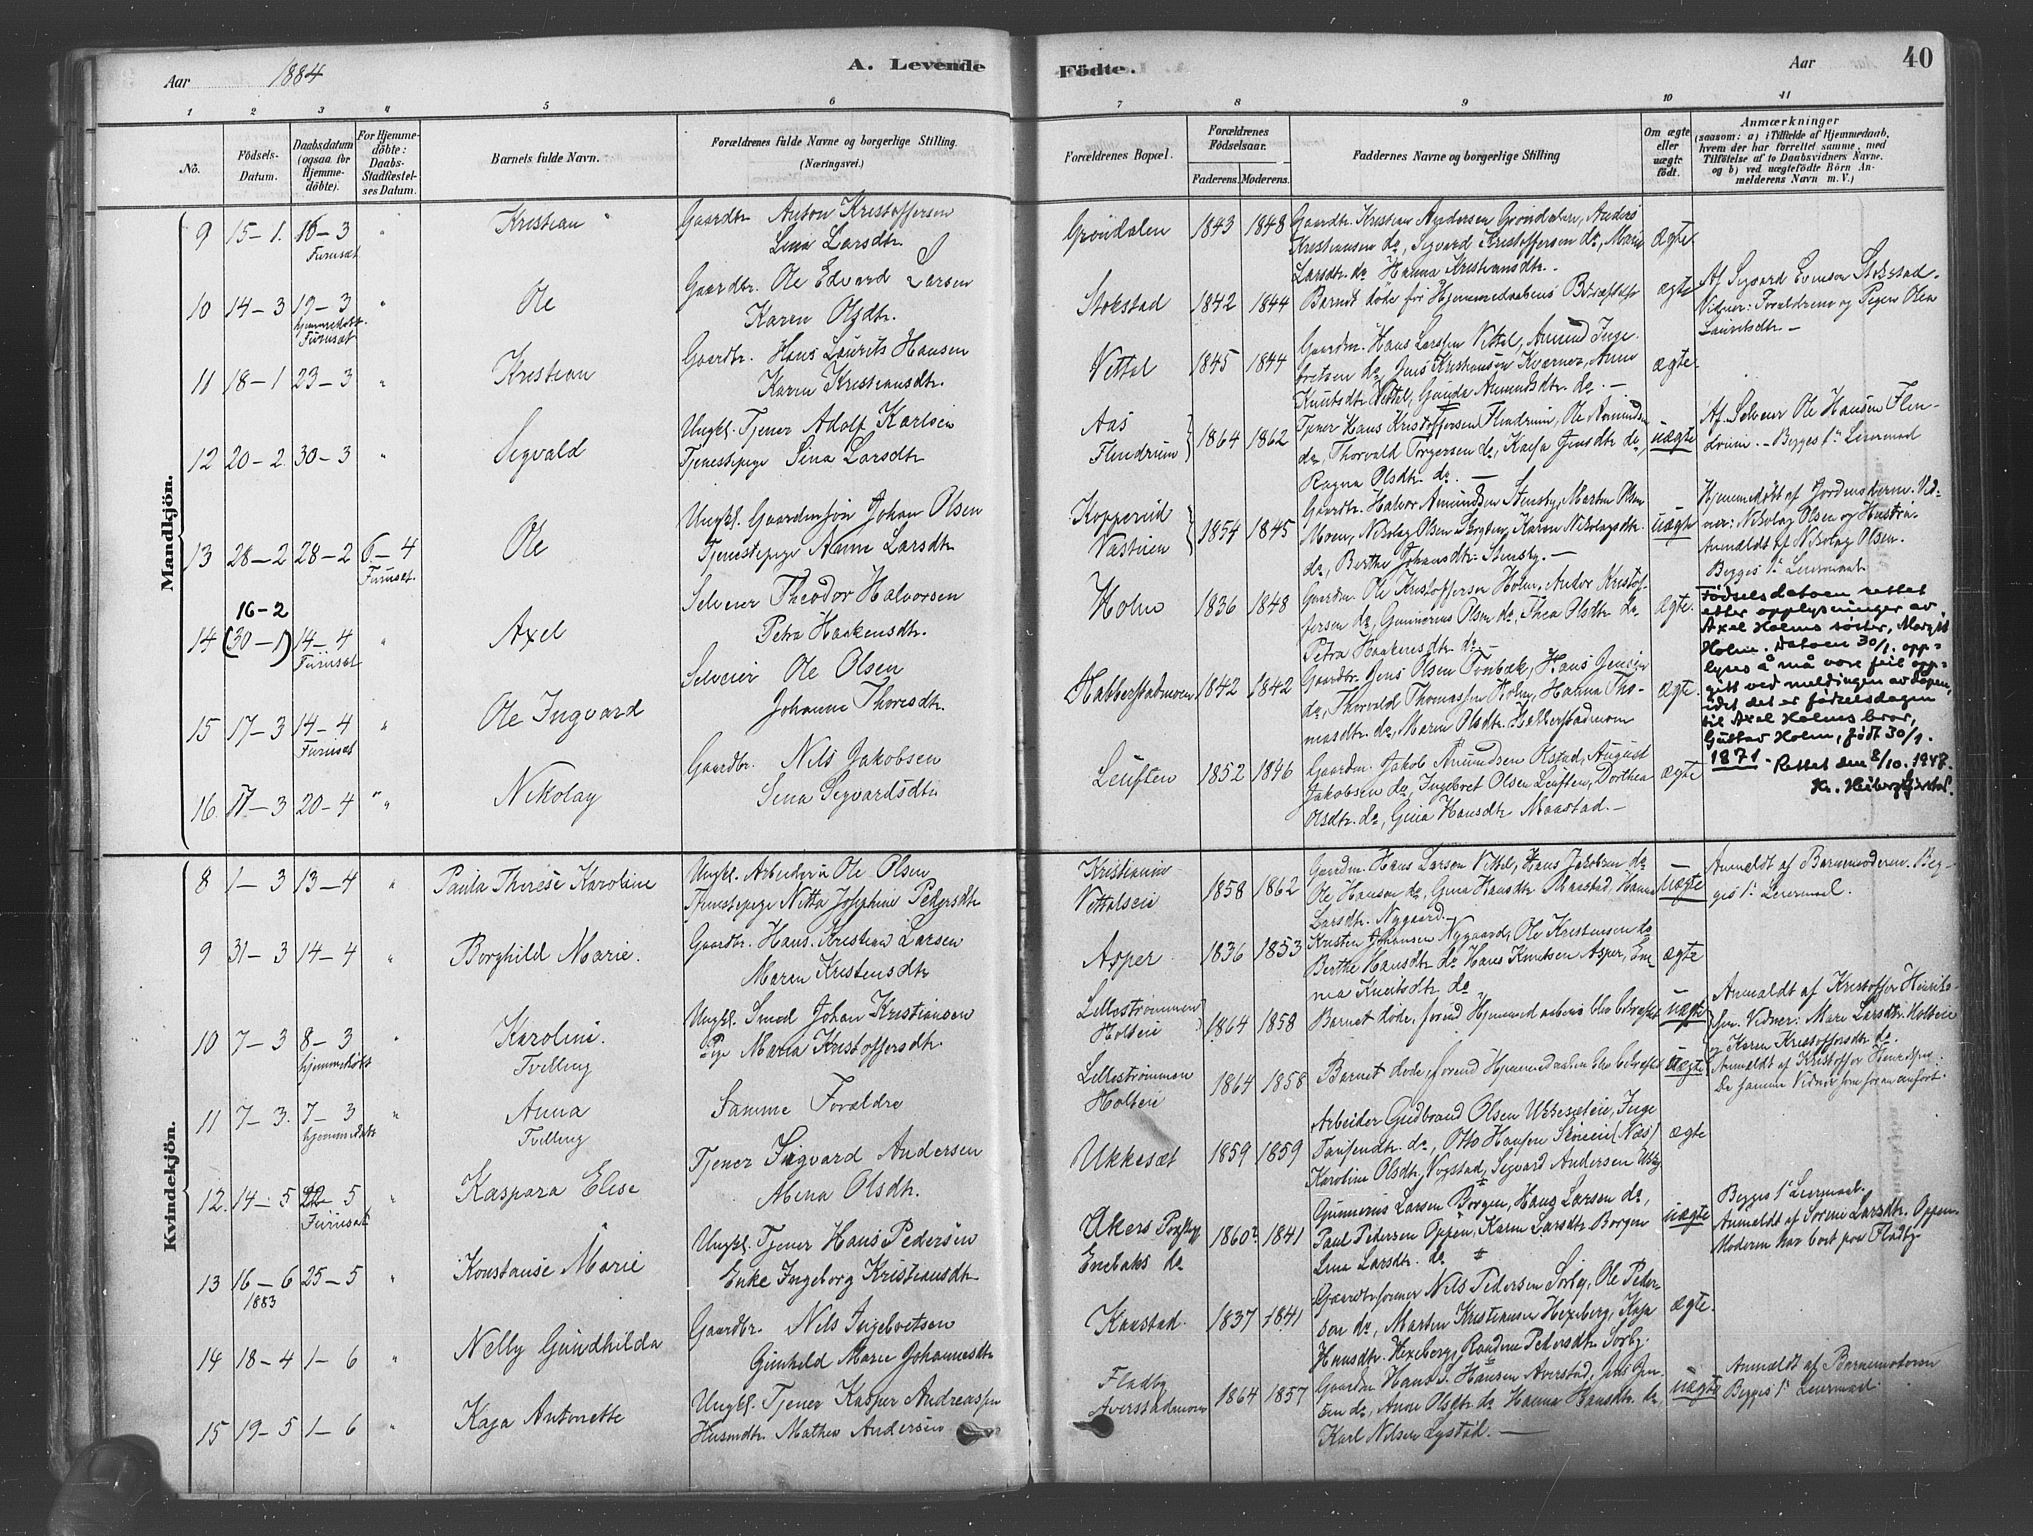 Aar 1884
A. Levende Födte.
Aar
40
1 2 3 4 5 6 7 8 9 10 11
No.
Födsels-
Datum.
Daabsdatum
(ogsaa for
Hjemme-
döbte).
For Hjemme-
döbte:
Daabs-
Stadfæstel-
ses Datum.
Barnets fulde Navn.
Forældrenes fulde Navne og borgerlige Stilling.
(Næringsvei.)
Forældrenes Bopæl.
Forældrenes
Födselsaar.
Faderens. Moderens.
Faddernes Navne og borgerlige Stilling
Om ægte
eller
uægte
födt.
Anmærkninger
(saasom: a) i Tilfælde af Hjemmedaab,
hvem der har forrettet samme, med
Tilföielse af to Daabsvidners Navne,
og b) ved uægtefödte Börn An-
melderens Navn m. V.)
Mandkjön.
9 15-1. 16-3 Furuset " Kristian
Gaardbr. Anton Kristoffersen
Lina Larsdtr.
Gröndalen 1843 1848
Gaardbr. Kristian Andersen Gröndalen, Anders
Kristiansen do, Sigvard Kristoffersen do, Marie
Larsdtr. do Hanna Kristiansdtr.
ægte.
10 14-3 19-3 hjemmedöbt. Furuset " Ole
Gaardbr. Ole Edvard Larsen
Karen Olsdtr.
Stokstad 1842 1844
Barnet döde för Hjemmedaabens Bekræftelse
ægte
Af Sigvard Evensen Stokstad.
Vidner: Forældrene og Pigen Olea
Lauritsdtr -
11 18-1 23-3 " Kristian
Gaardbr. Hans Laurits Hansen
Karen Kristiansdtr.
Vittal 1845 1844
Gaardm. Hans Larsen Vittal, Amund Inge
bretsen do, Jens Kristiansen Kverner, Anne
Knutsdtr. Vittal, Gunda Amundsdtr. do. -
ægte.
12 20-2 30-3 " Segvald
Ungkl. Tjener Adolf Karlsen
Tjenestepige Lina Larsdtr
Aas
Flendrum 1864 1862
Tjener Hans Kristoffersen Flendrum, Ole Amunds
do, Thorvald Torgersen do, Kaisa Jensdtr do,
Ragna Olsdtr. do. -
uægte
Af Selveier Ole Hansen Flen-
drum. - Begges 1ste Leiermaal
13 28-2 28-2 6-4 Furuset. Ole
Ungkl. Gaardmsön Johan Olsen
Tjenestepige Anne Larsdtr
Kopperud
Vastuen 1854 1845
Gaardbr. Halvor Amundsen Stensby, Martin Olsen
Moen, Nikolay Olsen, Karen Nikolaysdtr
do, Berthe Johansdtr. Stensby. -
uægte
Hjemmedöbt af Jordemoderen. Vid-
ner: Nikolay Olsen og Hustru.
Anmeldt af Nikolay Olsen.
Begges 1ste Leiermaal
16-2
14 (30-1) 14-4 Furuset " Axel
Selveier Theodor Halvorsen
Petra Haakensdtr.
Holm 1836 1848
Gaardm. Ole Kristoffersen Holm, Andor Kristof-
fersen do, Gunnerius Olsen do, Thea Olsdtr do
Petra Haakensdtr do
ægte.
Födselsdatoen rettet
etter opplysninger av
Axel Holms söster, Margit
Holm. Datoen 30/1. opp-
lyses å må vore feil opp-
gitt ved meldingen av dåpen,
idet det er födselsdagen
til Axel Holms bror,
Gustav Holm, född 30/1.
1871. Rettet den 8/10. 1948.
15 17-3 14-4 Furuset " Ole Ingvard
Selveier Ole Olsen
Johanne Thoresdtr.
Habberstadmoen 1842 1842
Gaardbr. Jens Olsen Tonbæk, Hans Jensen
do, Thorvald Thomassen Holm, Hanna Tho-
masdtr. do, Maren Olsdtr. Habberstadmoen
ægte.
16 17-3 20-4 " Nikolay
Gaardbr. Nils Jakobsen
Lina Segvardsdtr
Leuften 1852 1846
Gaardm. Jakob Amundsen Olstad, August
Jakobsen do, Ingebret Olsen Leuften, Dorthea
Olsdtr. do, Gina Hansdtr Maastad. -
ægte
Kvindekjön.
8 1-3 13-4 " Paula Therese Karoline
Ungkl. Arbeider Ole Olsen
Tjenestepige Nitta Josephine Pedersdtr
Kristiania
Vittalseie 1858 1862
Gaardm. Hans Larsen Vittal, Hans Jakobsen do
Ole Hansen do, Gina Hansdtr Maastad, Hanna
Larsdtr. Nygaard.
uægte
Anmældt af Barnemoderen. Beg-
ges 1ste Leiermaal.
9 31-3 14-4 " Borghild Marie.
Gaardbr. Hans Kristian Larsen
Maren Kristensdtr
Asper 1836 1853
Kristen Johansen Nygaard, Ole Kristensen do
Berthe Hansdtr do Hans Knutsen Asper, Em-
ma Knutsdtr do
ægte
10 7-3 8-3 hjemmedöbt " Karoline. Tvilling
Ungkl. Smed Johan Kristiansen
Pige Maria Kristoffersdtr.
Lilleströmmen
Holteie 1864 1858
Barnet döde, forend Hjemmedaaben blev bekræftet
uægte
Anmeldt af Kristoffer Henrik-
sen. Vidner: Mari Larsdtr. Holteie
og Karen Kristoffersdtr do.
11 7-3. 7-3 hjemmedöbt " Anna Tvilling
Samme Forældre
Lilleströmmen
Holteie 1864 1858
Barnet döde, forend Hjemmedaaben blev bekræftet
uægte
Anmældt af Kristoffer Henriksen.
De samme Vidner som foran anfört.
12. 14-5 22-5 Furuset " Kaspara Elise
Tjener Sigvard Andersen
Mena Olsdtr.
Ukkesæt 1859 1859
Arbeider Gudbrand Olsen Ukkesæteie, Inge
do, Otto Hansen (Næs)
Karoline Olsdtr. Vogstad, Segvard Andersen
ægte
13 16-6 1883 25-5 " Konstanse Marie
Ungkl. Tjener Hans Pedersen
Enke Ingeborg Kristiansdtr
Akers
Enebaks do 1860? 1841
Gunnerius Larsen Borgen, Hans Larsen do,
Paul Pedersen Oppen, Karen Larsdtr Borgen
Lina Larsdtr. do
uægte
Begges 1ste Leiermaal.
Anmældt af Sörine Larsdtr. Oppen
Moderen har bort paa Fladby
14 18-4 1-6 " Nelly Gundhilda
Gaardbr. Nils Ingebretsen
Gunhild Marie Johannesdtr
Kanstad. 1837 1841
Gaardbr. Nils Pedersen Sörby, Ole Peder-
sen do, Martin Kristiansen Hexeberg, Kaja
Hansdtr. Hexeberg, Randine Pedersdtr. Sörby.
ægte.
15 19-5 1-6 " Kaja Antonette
Ungkl. Tjener Kasper Andreassen
Husmdtr. Mathea Andersen
Fladby
Averstadmoen 1864 1857
Gaardm Hans S. Hansen Averstad, Jens Jen-
sen do, Anne Olsdtr do Hanna Hansdtr. do,
Karl Nilsen Lystad. -
uægte
Anmældt af Barnemoderen
Begges 1ste Leiermaal.